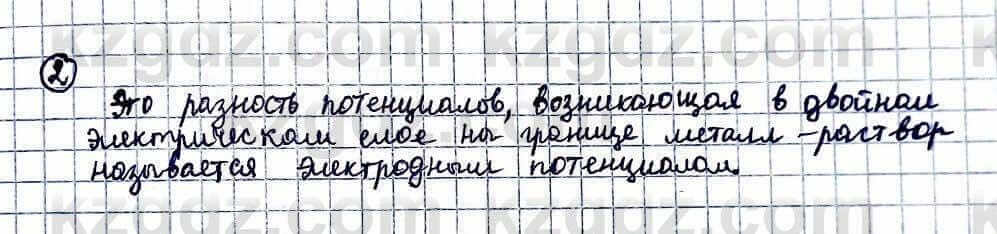 kzgdz.com
2
Это разность потенциалов, возникающая в двойном
электрическом слое на границе металл-раствор
называется электродным потенциалом.